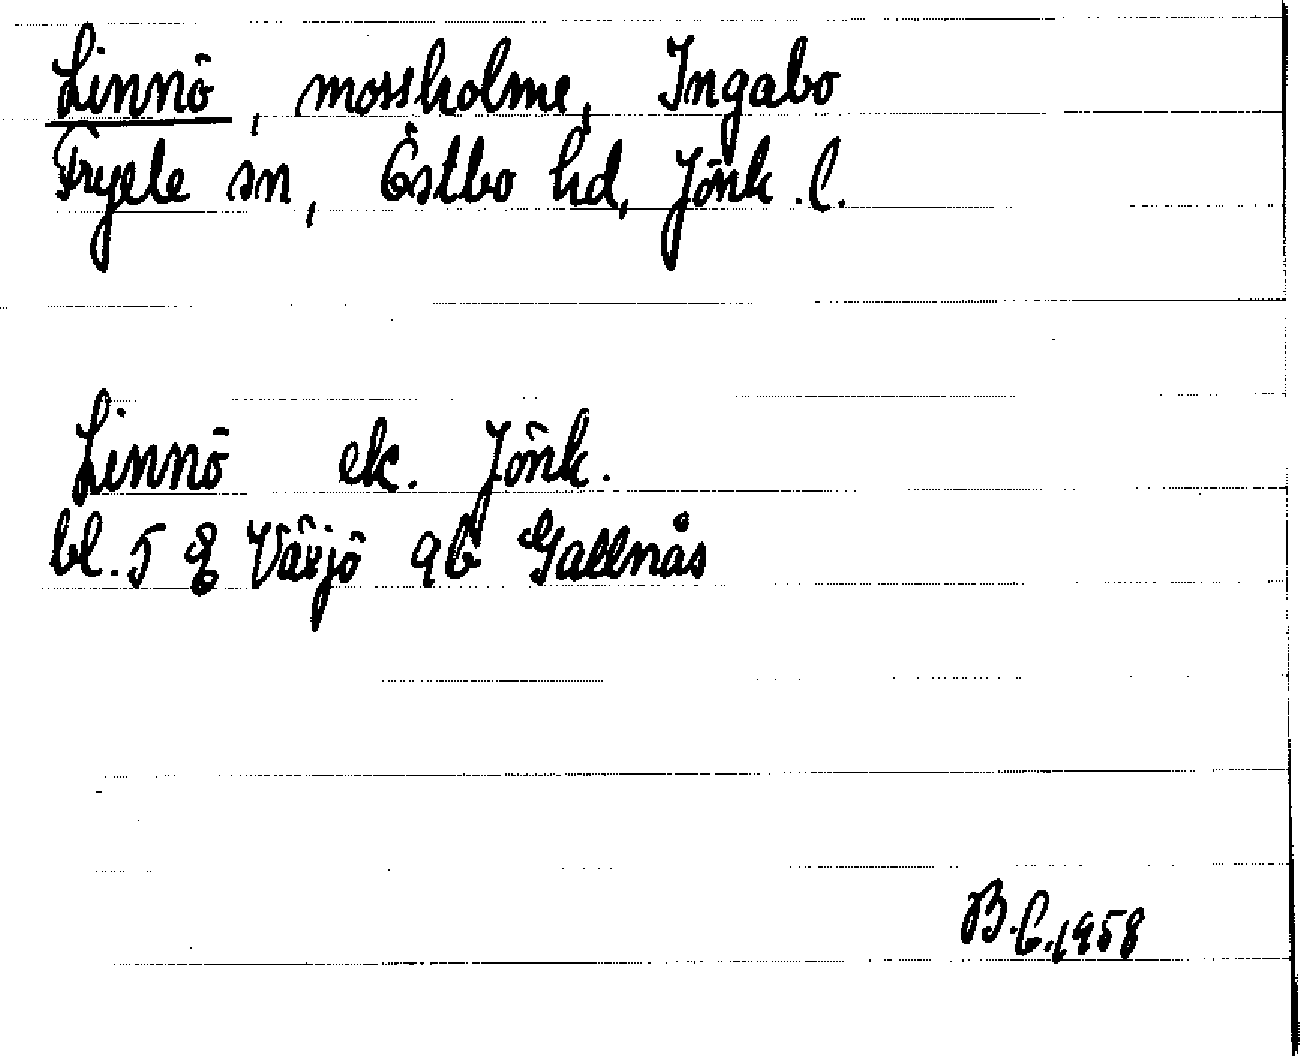 Linnö, mossholme, Ingabo
Fryele sn, Östbo hd, Jönk. l.
Linnö ek. Jönk.
bl. 5 E Växjö 9b Gallnås
B.C. 1958